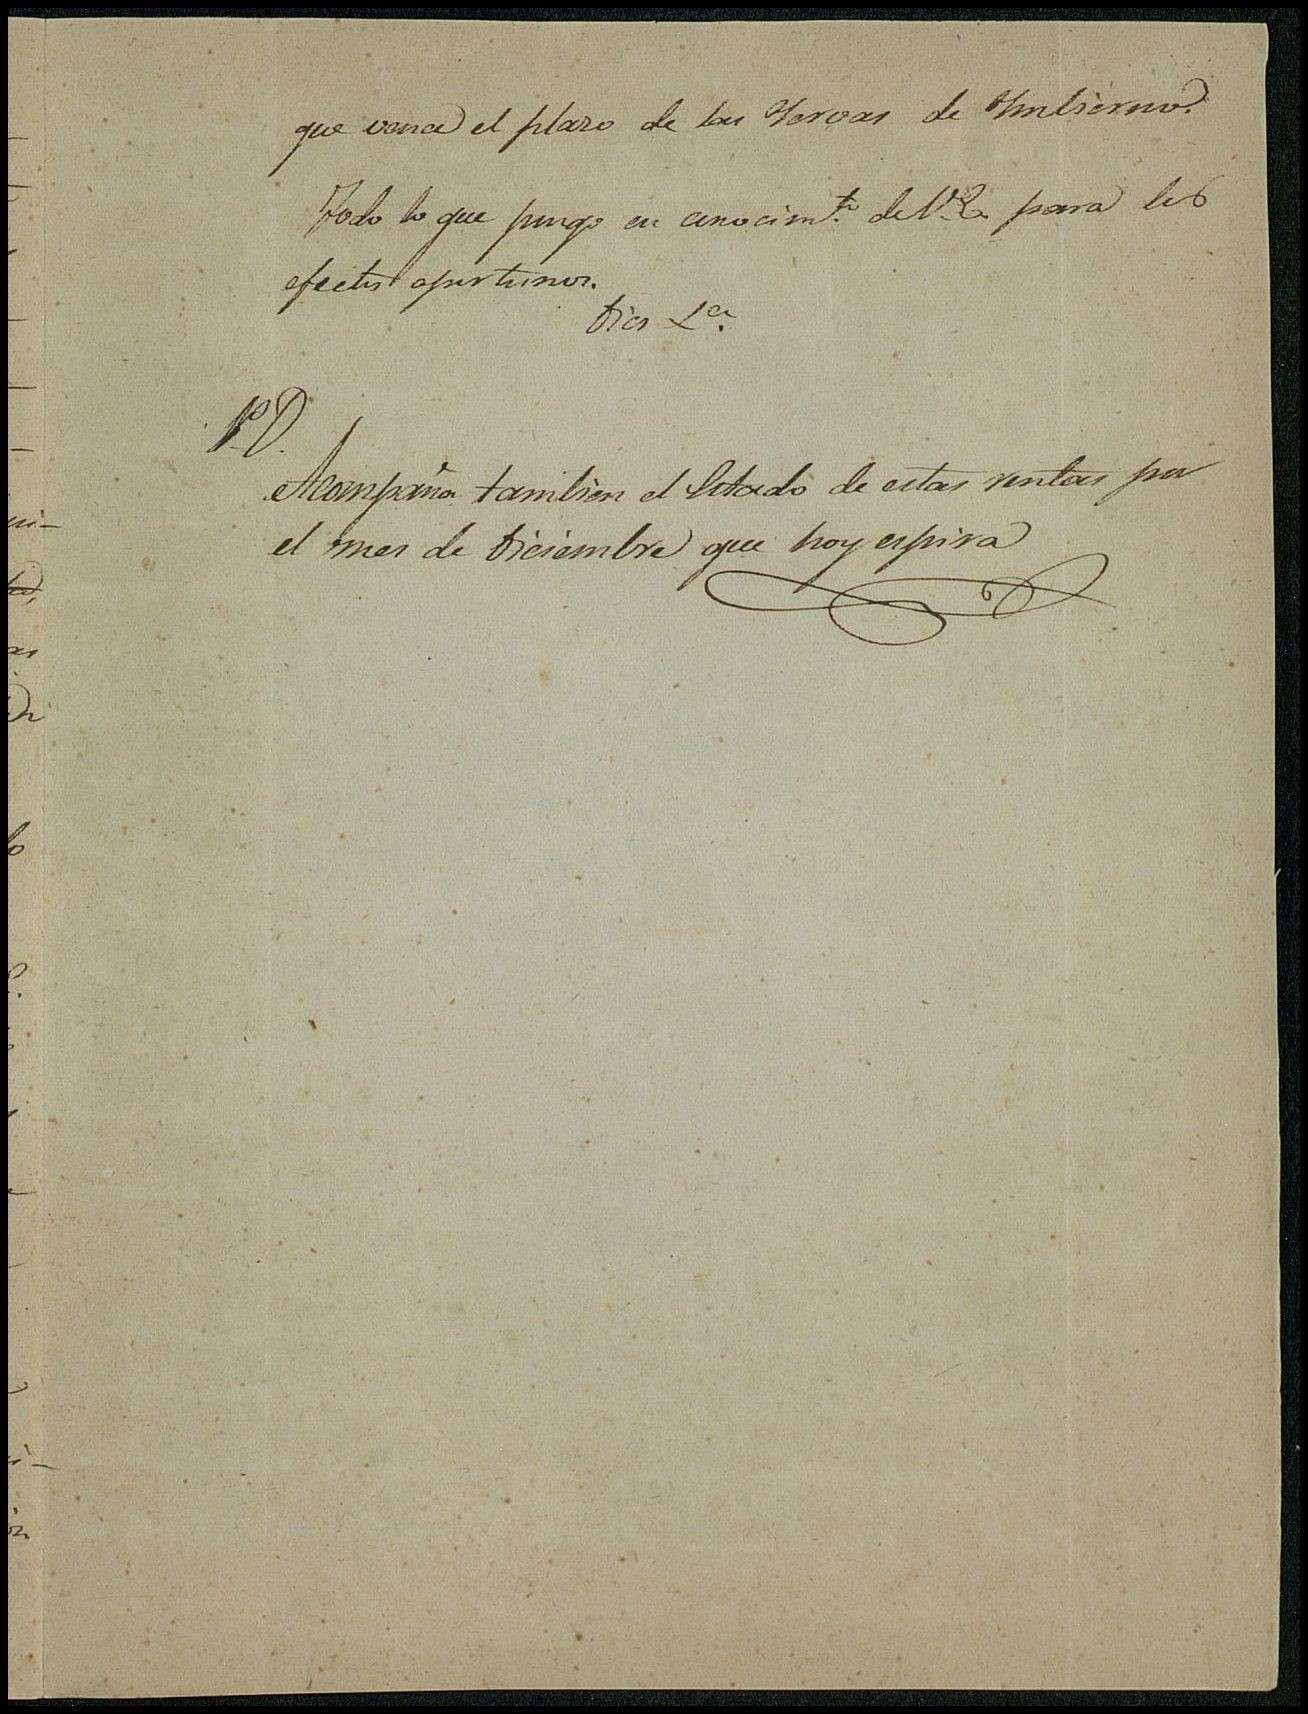 que vence el plazo de las Yervas de Ymbierno.
Todo lo que pongo en conocim.to de V.E. para los
efectos oportunos.
Dios &.a
P.D.
Acompaña tambien el Estado de estas rentas por
el mes de Diciembre que hoy espira